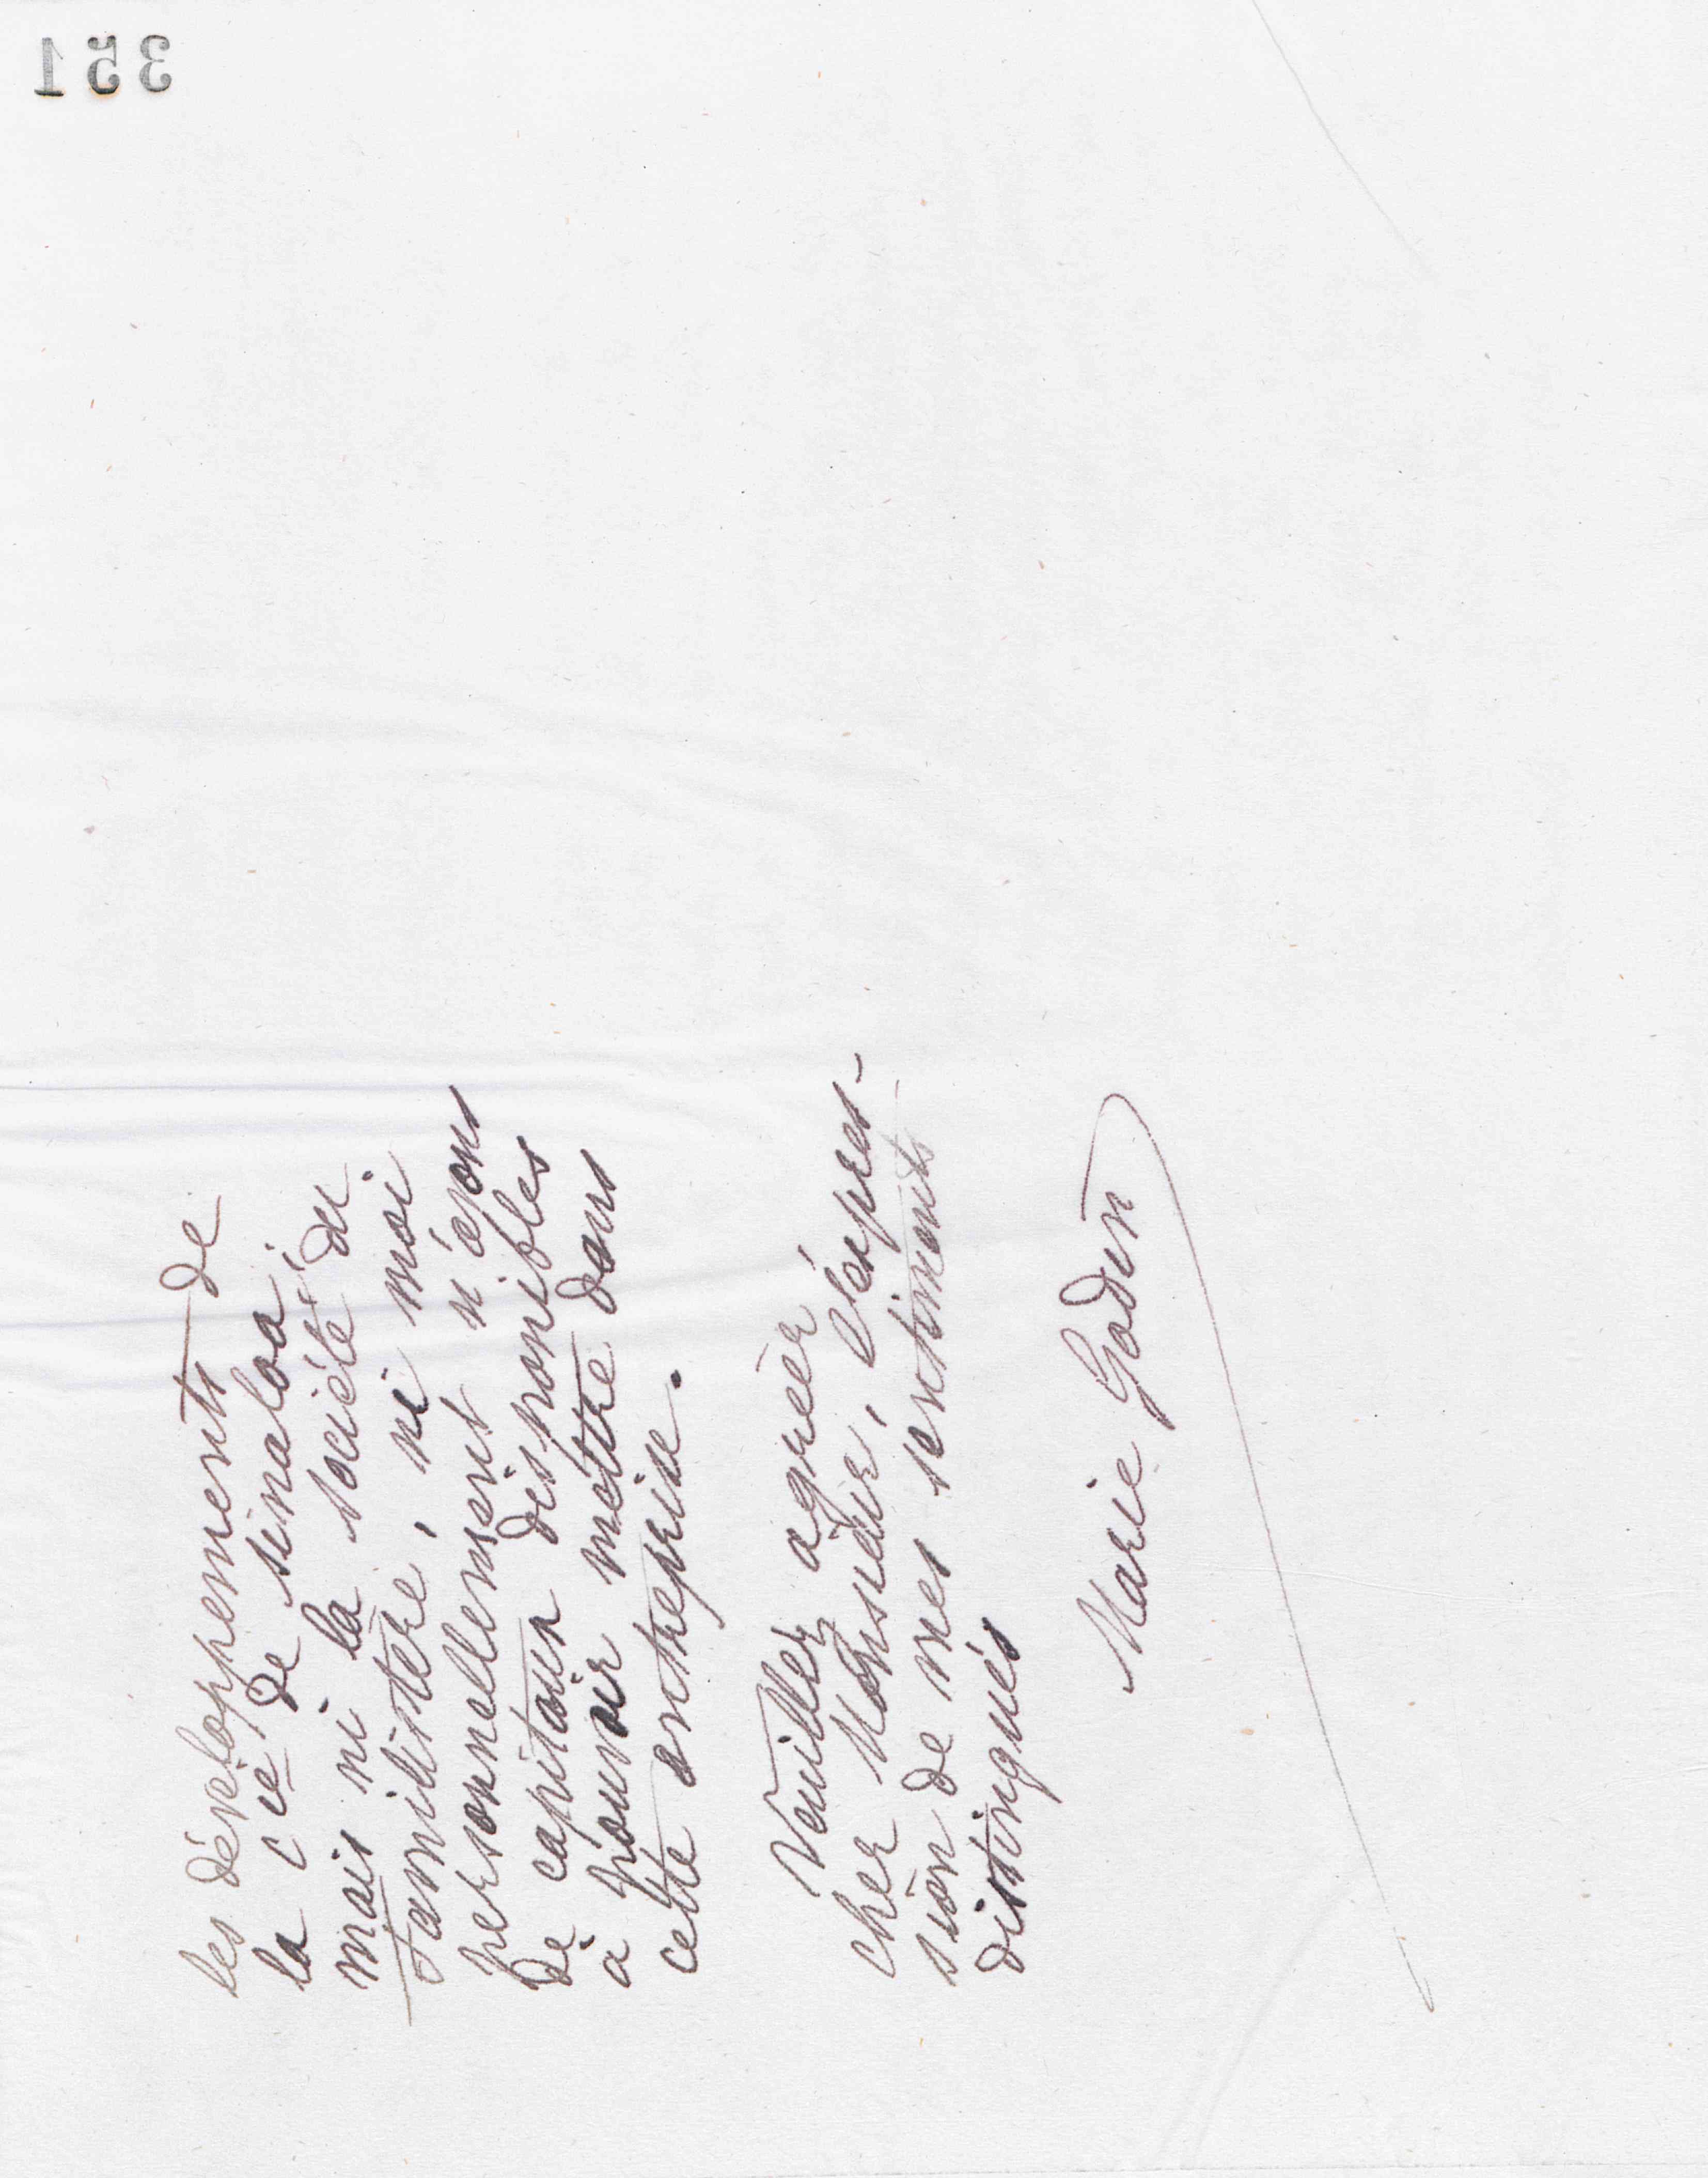 351
les développements de
la Cie de Sinaloa;
mais ni la société du
familistère, ni moi
personnellement n'avons
de capitaux disponibles
à pouvoir mettre dans
cette entreprise.
Veuillez agréer
cher Monsieur, l'expres-
sion de mes sentiments
distingués
Marie Godin